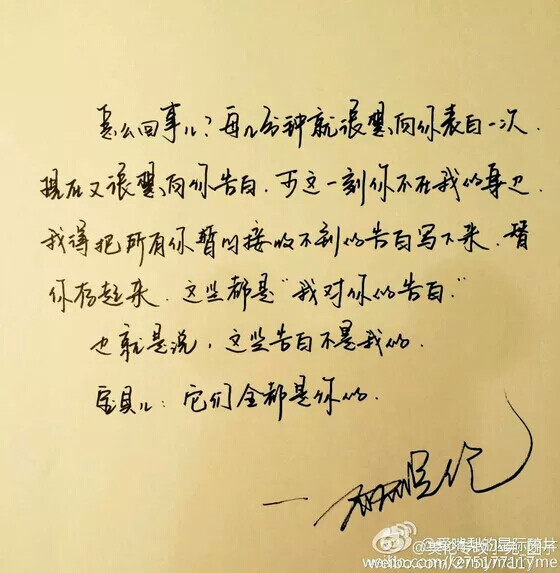 怎么回事儿？每几分钟就很想向你表白一次.
现在又很想向你告白.可这一刻你不在我的身边.
我得把所有你暂时接收不到的告白写下来.替
你存起来.这些都是“我对你的告白.”
也就是说,这些告白不是我的.
宝贝儿:它们全都是你的.